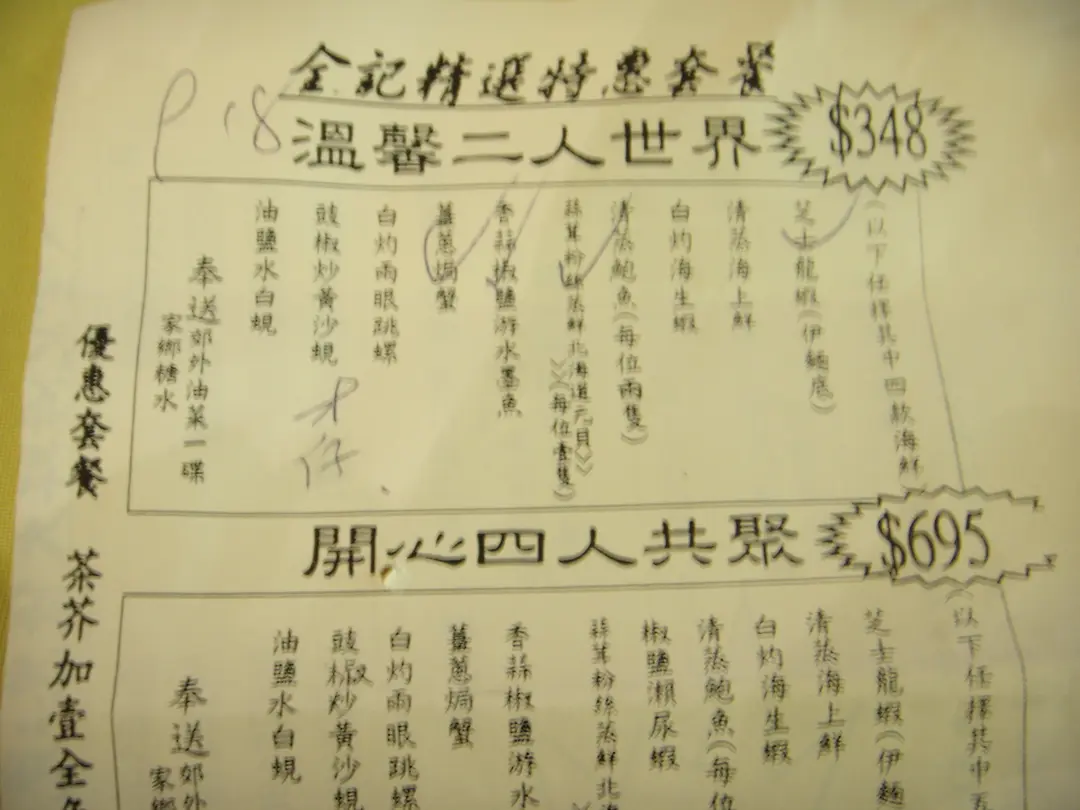 全記精選特惠套餐
溫馨二人世界
$348
(以下任擇其中四款海鮮)
芝士龍蝦(伊麵底)
清蒸海上鮮
白灼海生蝦
清蒸鮑魚(每位兩隻)
蒜茸粉絲蒸鮮北海道元貝(每位壹隻)
香蒜椒鹽游水墨魚
薑蔥焗蟹
白灼雨眼跳螺
豉椒炒黃沙蜆
油鹽水白蜆
奉送郊外油菜一碟
家鄉糖水
開心四人共聚
$695
(以下任擇其中五
芝士龍蝦(伊麵
清蒸海上鮮
白灼海生蝦
清蒸鮑魚(每位
椒鹽瀨尿蝦
蒜茸粉絲蒸鮮北海
香蒜椒鹽游水
薑蔥焗蟹
白灼雨眼跳螺
豉椒炒黃沙蜆
油鹽水白蜆
奉送郊外
家鄉
優惠套餐 茶芥加壹全免